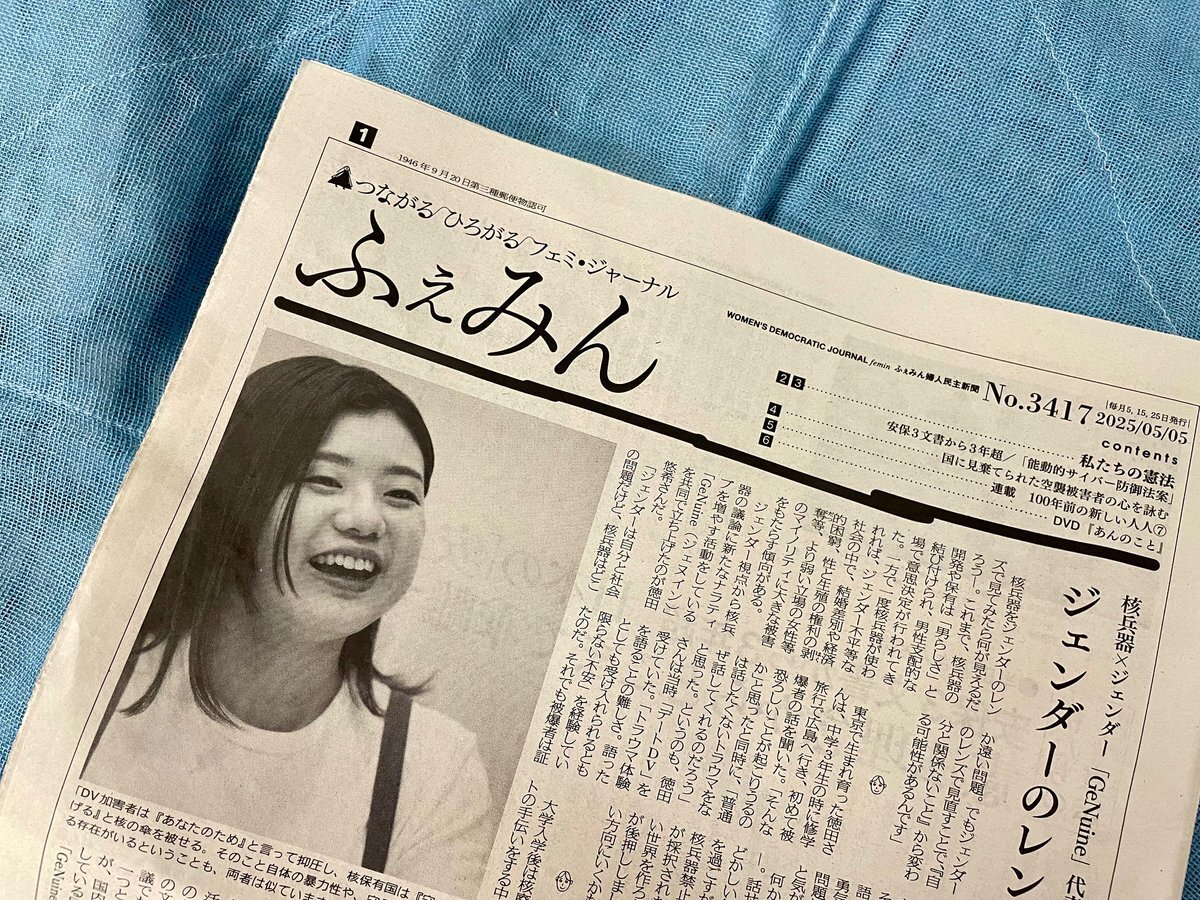 1
1946年9月20日第三種郵便物認可
つながる／ひろがる／フェミ・ジャーナル
ふぇみん
WOMEN'S DEMOCRATIC JOURNAL femin ふぇみん婦人民主新聞
No.3417
毎月5, 15, 25日発行
2025/05/05
contents
2 3 私たちの憲法
安保3文書から3年超／「能動的サイバー防御法案」
4 国に見棄てられた空襲被害者の心を詠む
5 連載 100年前の新しい人人⑦
6 DVD『あんのこと』
核兵器×ジェンダー「GeNuine」代
ジェンダーのレン
核兵器をジェンダーのレン
ズで見てみたら何が見えるだ
ろう―。これまで、核兵器の
開発や保有は「男らしさ」と
結び付けられ、男性支配的な
場で意思決定が行われてき
た。一方で一度核兵器が使わ
れれば、ジェンダー不平等な
社会の中で、結婚差別や経済
的困窮、性と生殖の権利の剥
奪等、より弱い立場の女性等
のマイノリティに大きな被害
をもたらす傾向がある。
ジェンダー視点から核兵
器の議論に新たなナラティ
ブを増やす活動をしている
「GeNuine（ジェヌイン）」
を共同で立ち上げたのが徳田
悠希さんだ。
「ジェンダーは自分と社会
の問題だけど、核兵器はどこ
か遠い問題。でもジェンダー
のレンズで見直すことで、『自
分と関係ないこと』から変わ
る可能性があるんです」
東京で生まれ育った徳田さ
んは、中学3年生の時に修学
旅行で広島へ行き、初めて被
爆者の話を聞いた。「そんな
恐ろしいことが起こりうるの
かと思ったと同時に、「普通
は話したくないトラウマをな
ぜ話してくれるのだろう」
と思った。というのも、徳田
さんは当時「デートDV」を
受けていた。「トラウマ体験
を語ることの難しさ。語った
としても受け入れられるとも
限らない不安」を経験してい
たのだ。「それでも被爆者は証
大学入学後は核廃
トの手伝いをする中
「DV加害者は『あなたのため』と言って抑圧し、核保有国は『守
げる』と核の傘を被せる。そのこと自体の暴力性や、
る存在がいるということも、両者は似ていま